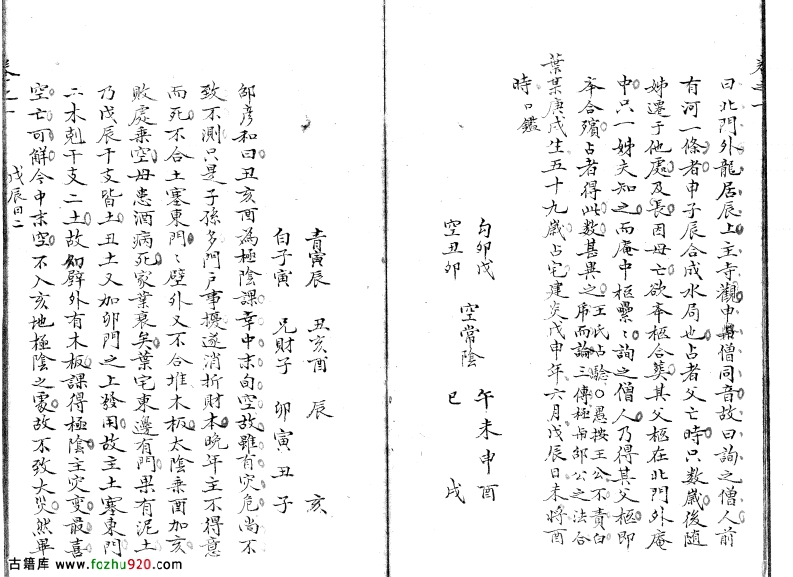 卷之一
曰北門外龍居辰上主寺觀申與僧同音故曰詢之僧人前
有河一條者申子辰合成水局也占者父亡時只数嵗後随
姊遷于他處及長因母亡欲奉柩合塟其父柩在北門外庵
中只一姊夫知之而庵中柩纍〻詢之僧人乃得其父柩即
奉合殯占者得此数甚異之 王氏占驗○愚按王公不責白
虎而論三傳極與邵公之法合
葉某庚戌生五十九嵗占宅建炎戊申年六月戊辰日未將酉
時口鑑
勾卯戊 空常陰 午未申酉
空丑卯 巳 戌
青寅辰 丑亥酉 辰 亥
白子寅 兄財子 卯寅丑子
邵彦和曰丑亥酉為極陰課幸中末旬空故雖有灾危尚不
致不測只是子孫多門户事擾遂消折財本晚年主不得意
而死不合土塞東門〻壁外又不合堆木板太陰乘酉加亥
敗處乗空毋患酒病死家業衰矣葉宅東邊有門果有泥土
乃戊辰干支皆土丑土又加卯門之上發用故主土塞東門
二木剋干支二土故知壁外有木板課得極陰主灾變最喜
空亡可解今中末空不入亥地極陰之處故不致大灾然畢
卷之一
戊辰日二
古籍库 www.fozhu920.com